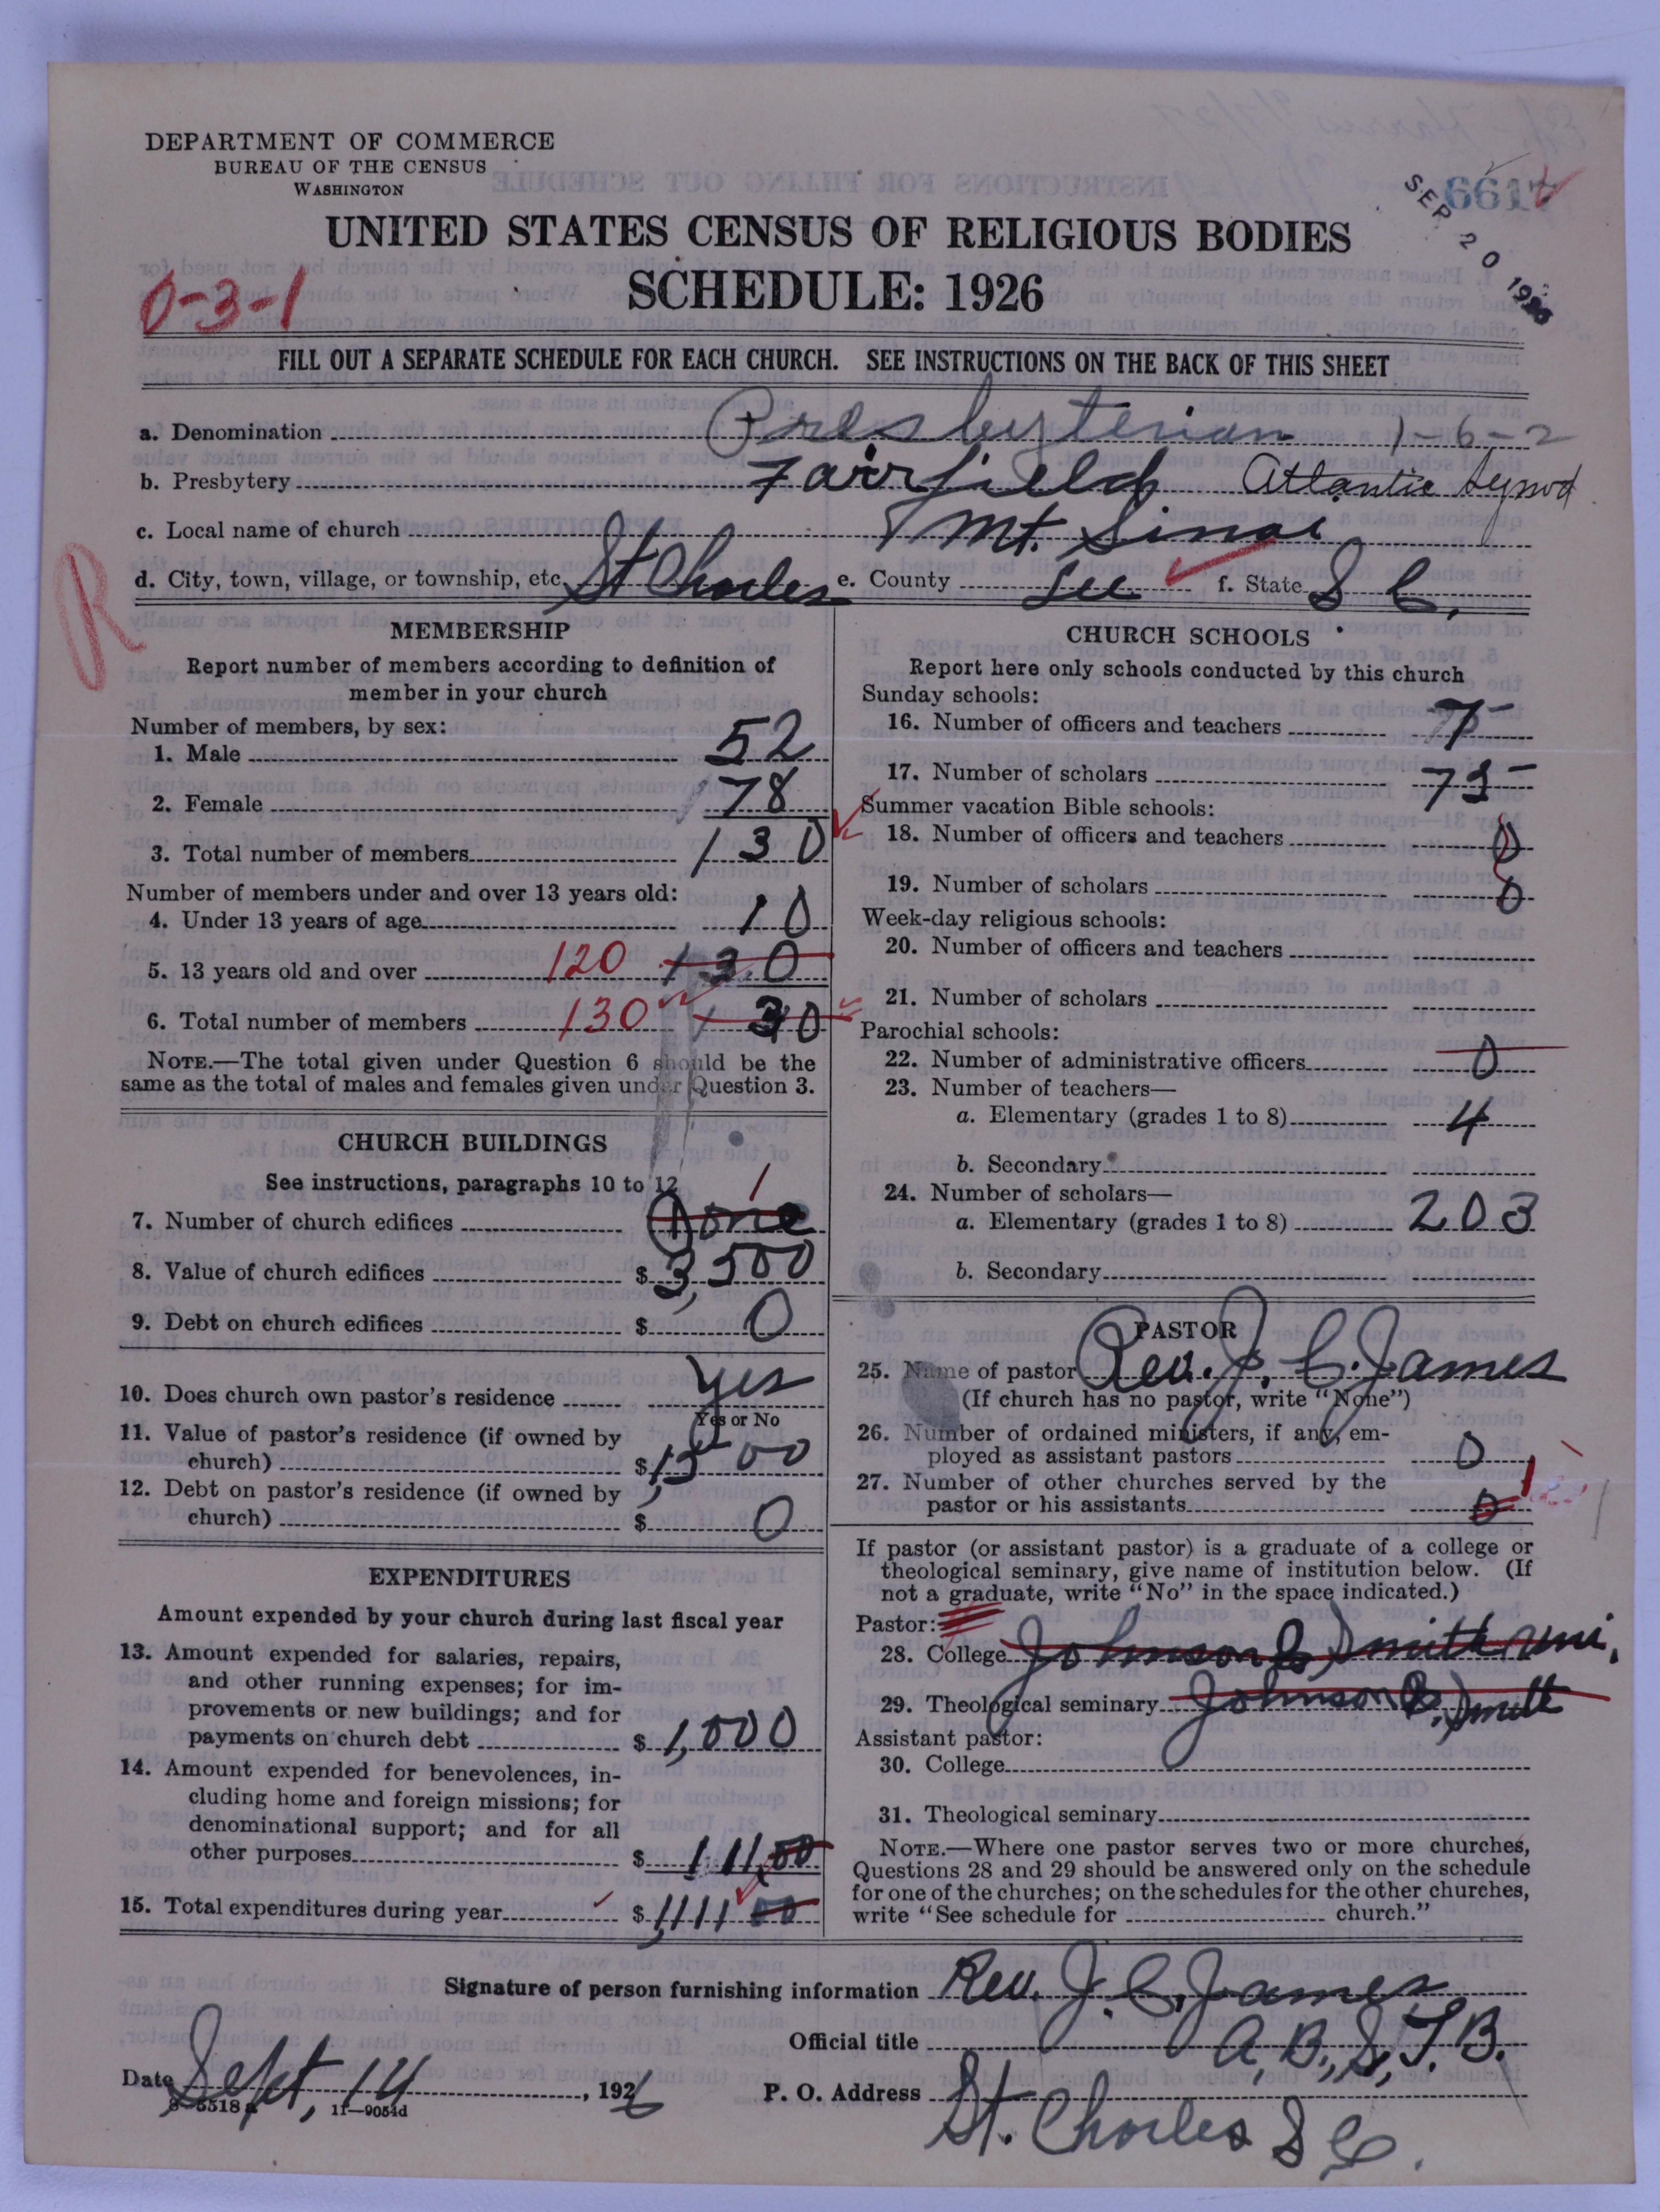 DEPARTMENT OF COMMERCE
BUREAU OF THE CENSUS
WASHINGTON
UNITED STATES CENSUS OF RELIGIOUS BODIES
SCHEDULE: 1926
SEP 20 1926
0-3-1
FILL OUT A SEPARATE SCHEDULE FOR EACH CHURCH. SEE INSTRUCTIONS ON THE BACK OF THIS SHEET
a. Denomination Presbyterian 1-6-2
b. Presbytery Fairfield Atlantic Synod
c. Local name of church Mt. Sinai
d. City, town, village, or township, etc. St Charles e. County Lee f. State S C.
R
MEMBERSHIP
Report number of members according to definition of
member in your church
Number of members, by sex:
1. Male 52
2. Female 78
3. Total number of members 130
Number of members under and over 13 years old:
4. Under 13 years of age 10
5. 13 years old and over 120 130
6. Total number of members 130
NOTE.—The total given under Question 6 should be the
same as the total of males and females given under Question 3.
CHURCH BUILDINGS
See instructions, paragraphs 10 to 12
7. Number of church edifices 1
8. Value of church edifices $ 3,500
9. Debt on church edifices $ 0
10. Does church own pastor's residence yes
Yes or No
11. Value of pastor's residence (if owned by
church) $ 1,500
12. Debt on pastor's residence (if owned by
church) $ 0
EXPENDITURES
Amount expended by your church during last fiscal year
13. Amount expended for salaries, repairs,
and other running expenses; for im-
provements or new buildings; and for
payments on church debt $ 1,000
14. Amount expended for benevolences, in-
cluding home and foreign missions; for
denominational support; and for all
other purposes $ 111,00
15. Total expenditures during year $ 1,111 00
CHURCH SCHOOLS
Report here only schools conducted by this church
Sunday schools:
16. Number of officers and teachers 7
17. Number of scholars 75
Summer vacation Bible schools:
18. Number of officers and teachers 0
19. Number of scholars 0
Week-day religious schools:
20. Number of officers and teachers
21. Number of scholars
Parochial schools:
22. Number of administrative officers 0
23. Number of teachers—
a. Elementary (grades 1 to 8) 4
b. Secondary
24. Number of scholars—
a. Elementary (grades 1 to 8) 203
b. Secondary
PASTOR
25. Name of pastor Rev. J. C. James
(If church has no pastor, write "None")
26. Number of ordained ministers, if any, em-
ployed as assistant pastors 0
27. Number of other churches served by the
pastor or his assistants 0 1
If pastor (or assistant pastor) is a graduate of a college or
theological seminary, give name of institution below. (If
not a graduate, write "No" in the space indicated.)
Pastor:
28. College Johnson C. Smith Uni.
29. Theological seminary Johnson C. Smith
Assistant pastor:
30. College
31. Theological seminary
NOTE.—Where one pastor serves two or more churches,
Questions 28 and 29 should be answered only on the schedule
for one of the churches; on the schedules for the other churches,
write "See schedule for church."
Signature of person furnishing information Rev. J. C. James
Official title A, B., S, T. B.
Date Sept, 14, 1926 P. O. Address St. Charles S C.
11—9054d